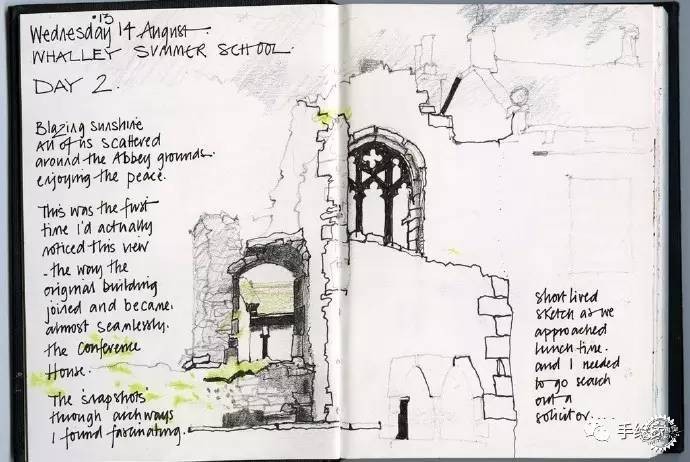 '13
Wednesday 14 August.
WHALLEY SUMMER SCHOOL.
DAY 2.
Blazing sunshine
All of us scattered
around the Abbey grounds.
enjoying the peace.
This was the first
time I'd actually
noticed this view
- the way the
original building
joined and became.
almost seamlessly.
the Conference
House.
The 'snapshots'
through archways
I found fascinating.
short lived
sketch as we
approached
lunch time.
and I needed
to go search
out a
solicitor...
手绘